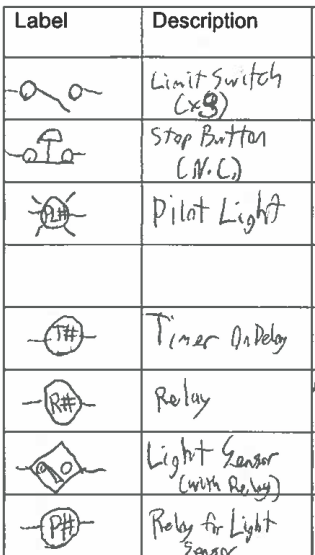 Label Description
Limit Switch
(x8)
Stop Button
(N.C.)
PL# Pilot Light
T# Timer OnDelay
R# Relay
Light Sensor
(with Relay)
P# Relay for Light
Sensor